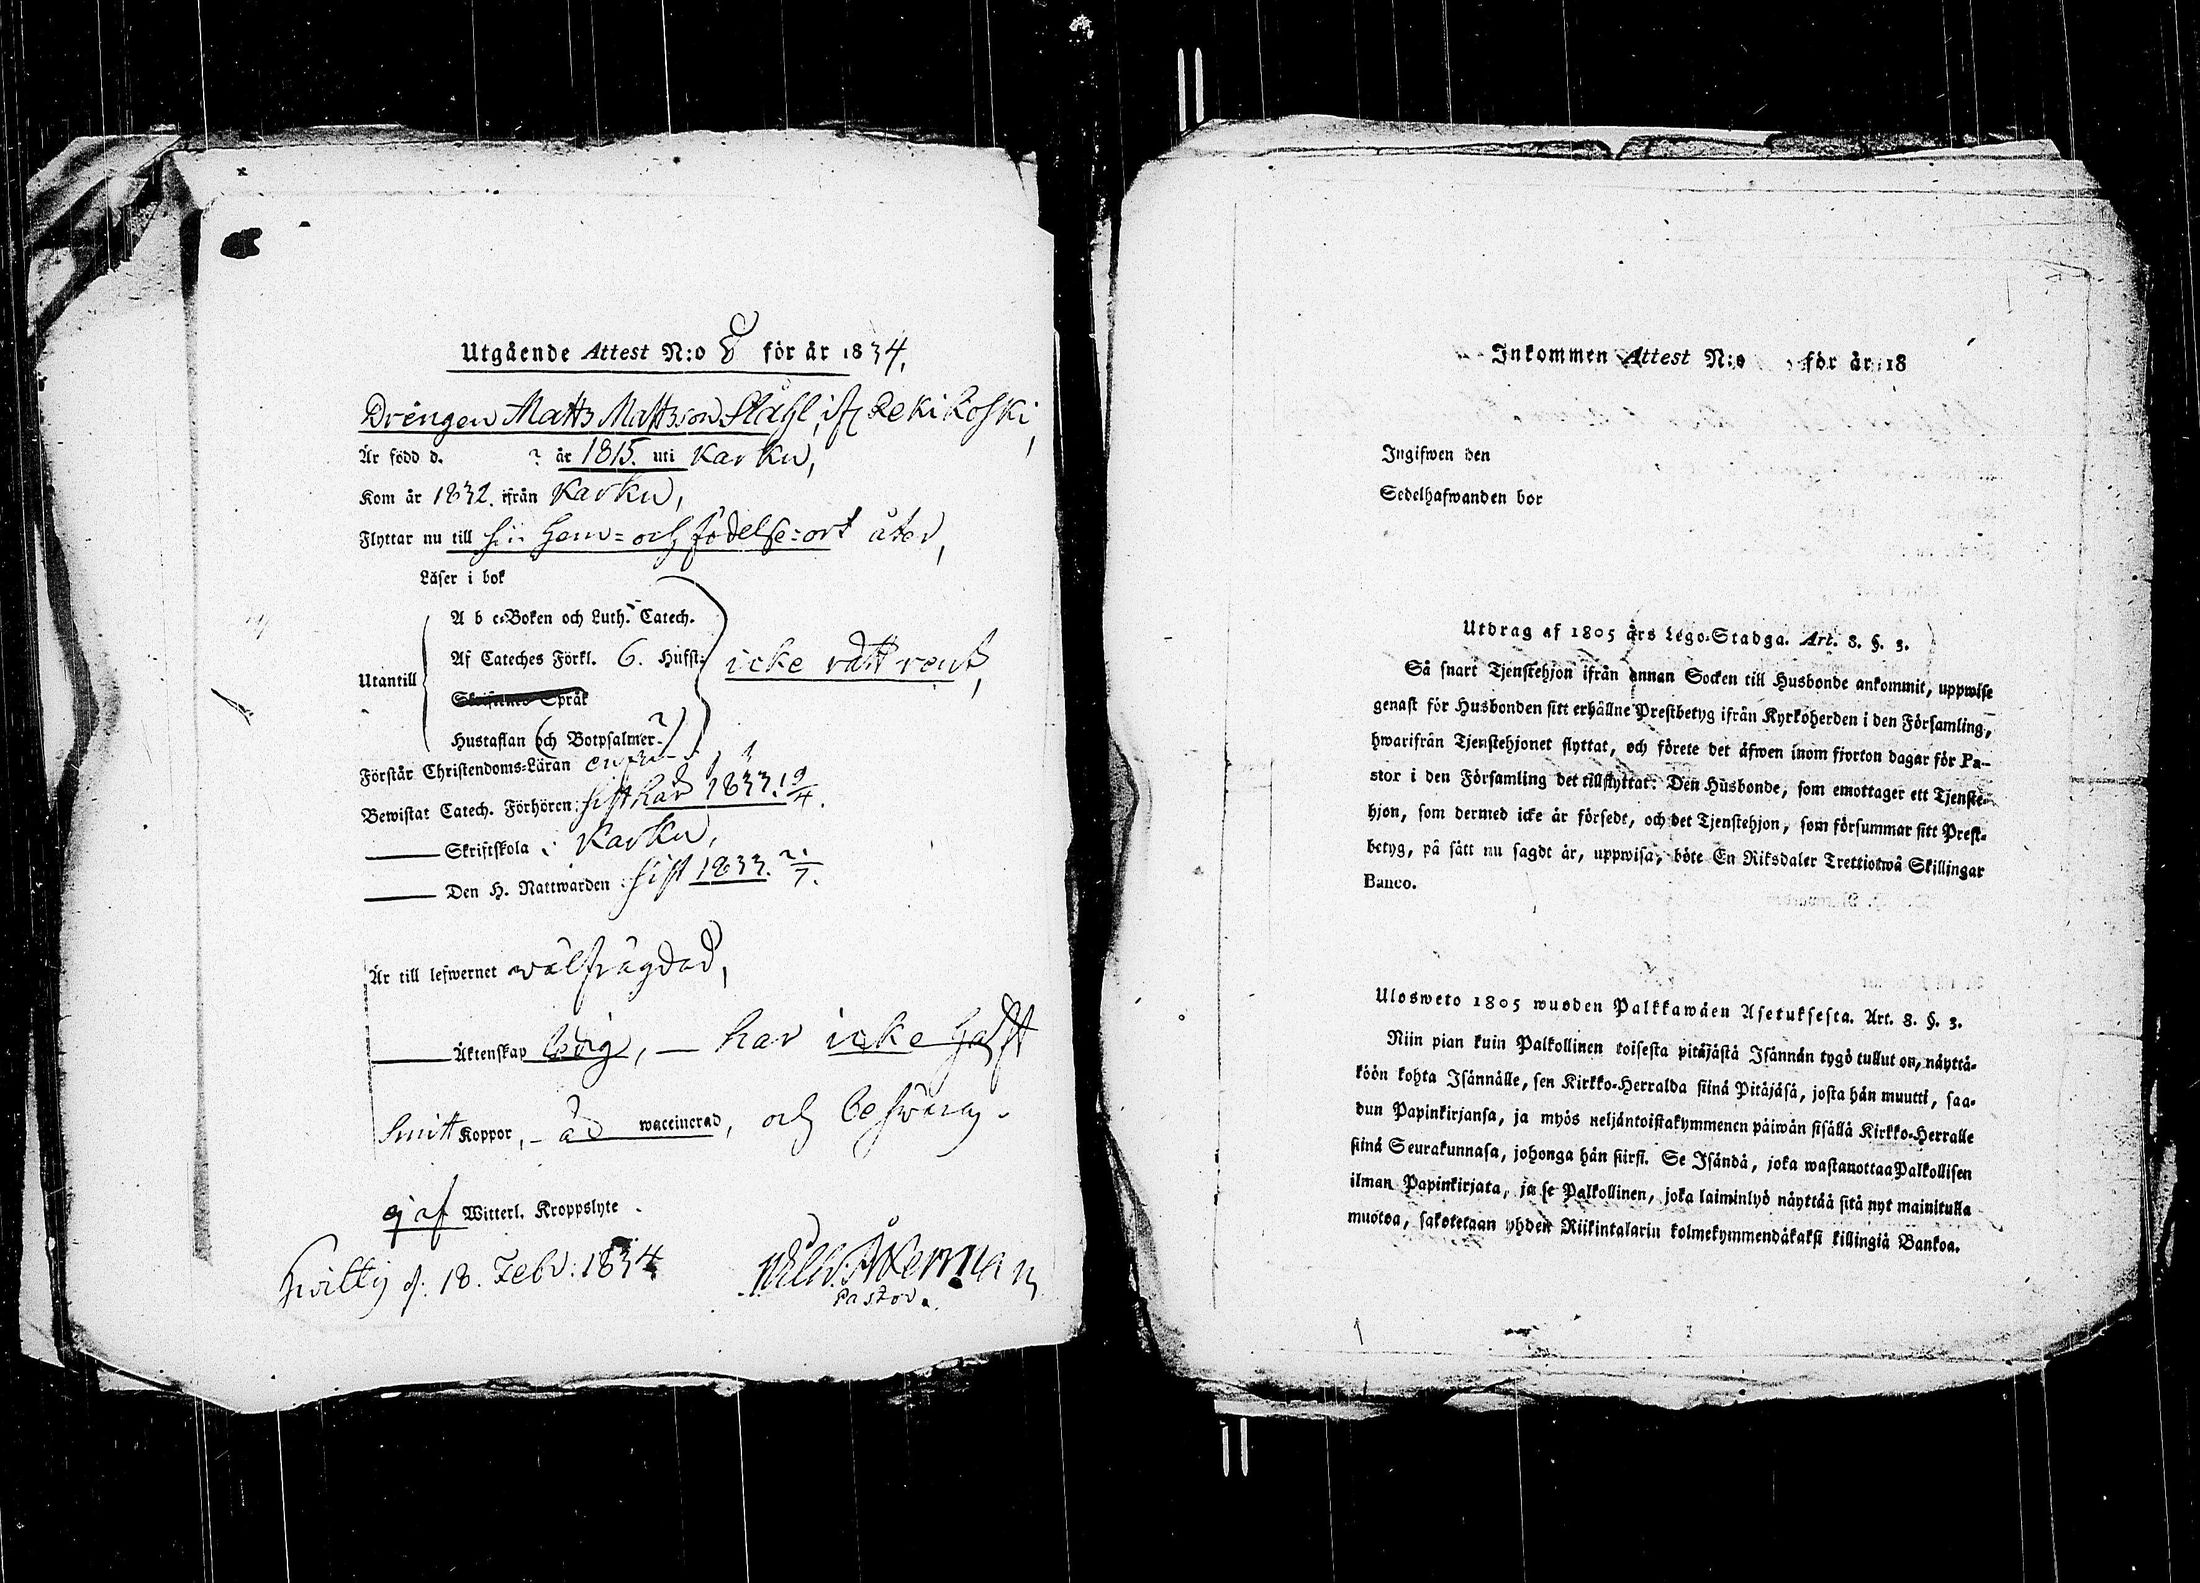 Utgående Attest N:o 8 för år 1834.
Drengen Matts Mattsson Ståhl, ifr Kekikoski,
Är född d. ? år 1815. uti Karku,
Kom år 1832. ifrån Karku,
Flyttar nu till sin hem= och födelse=ort åter,
Läser i bok
A b c-Boken och Luth. Catech.
Af Cateches Förkl. 6. Hufst: icke rätt rent,
Utantill
Språk
Hustaflan (och Botpsalmer ?)
Förstår Christendoms-Läran
Bewistat Catech. Förhören: sist här 1833. 19/4.
——— Skriftskola i Karku,
——— Den H. Nattwarden sist 1833. 21/7.
Är till lefwernet wälfrägdad,
——— Äktenskap ledig, — har icke haft
Smitt Koppor, – är waccinerad, och besväras
ej af Witterl. Kroppslyte.
Hvittis d. 18. Febr: 1834
Wilh: Åkerman
Pastor.
Inkommen Attest N:o för år 18
Ingifwen den
Sedelhafwanden bor
Utdrag af 1805 års Lego-Stadga. Art. 8. §. 3.
Så snart Tjenstehjon ifrån annan Socken till Husbonde ankommit, uppwise
genast för Husbonden sitt erhållne Prestbetyg ifrån Kyrkoherden i den Församling,
hwarifrån Tjenstehjonet flyttat, och förete det äfwen inom fjorton dagar för Pa-
stor i den Församling det tillflyttat: Den Husbonde, som emottager ett Tjenste-
hjon, som dermed icke är försedt, och det Tjenstehjon, som försummar sitt Prest-
betyg, på sätt nu sagdt är, uppwisa, böte En Riksdaler Trettiotwå Skillingar
Banco.
Ulosweto 1805 wuoden Palkkawäen Asetuksesta. Art. 8. §. 3.
Niin pian kuin Palkollinen toisesta pitäjästä Isännän tygö tullut on, näyttä-
köön kohta Isännälle, sen Kirkko-Herralda siinä Pitäjäsä, josta hän muutti, saa-
dun Papinkirjansa, ja myös neljäntoistakymmenen päiwän sisällä Kirkko-Herralle
siinä Seurakunnasa, johonga hän siirsi. Se Isändä, joka wastanottaa Palkollisen
ilman Papinkirjata, ja se Palkollinen, joka laiminlyö näyttää sitä nyt mainitulla
muotoa, sakotetaan yhden Riikintalarin kolmekymmendäkaksi killingiä Bankoa.